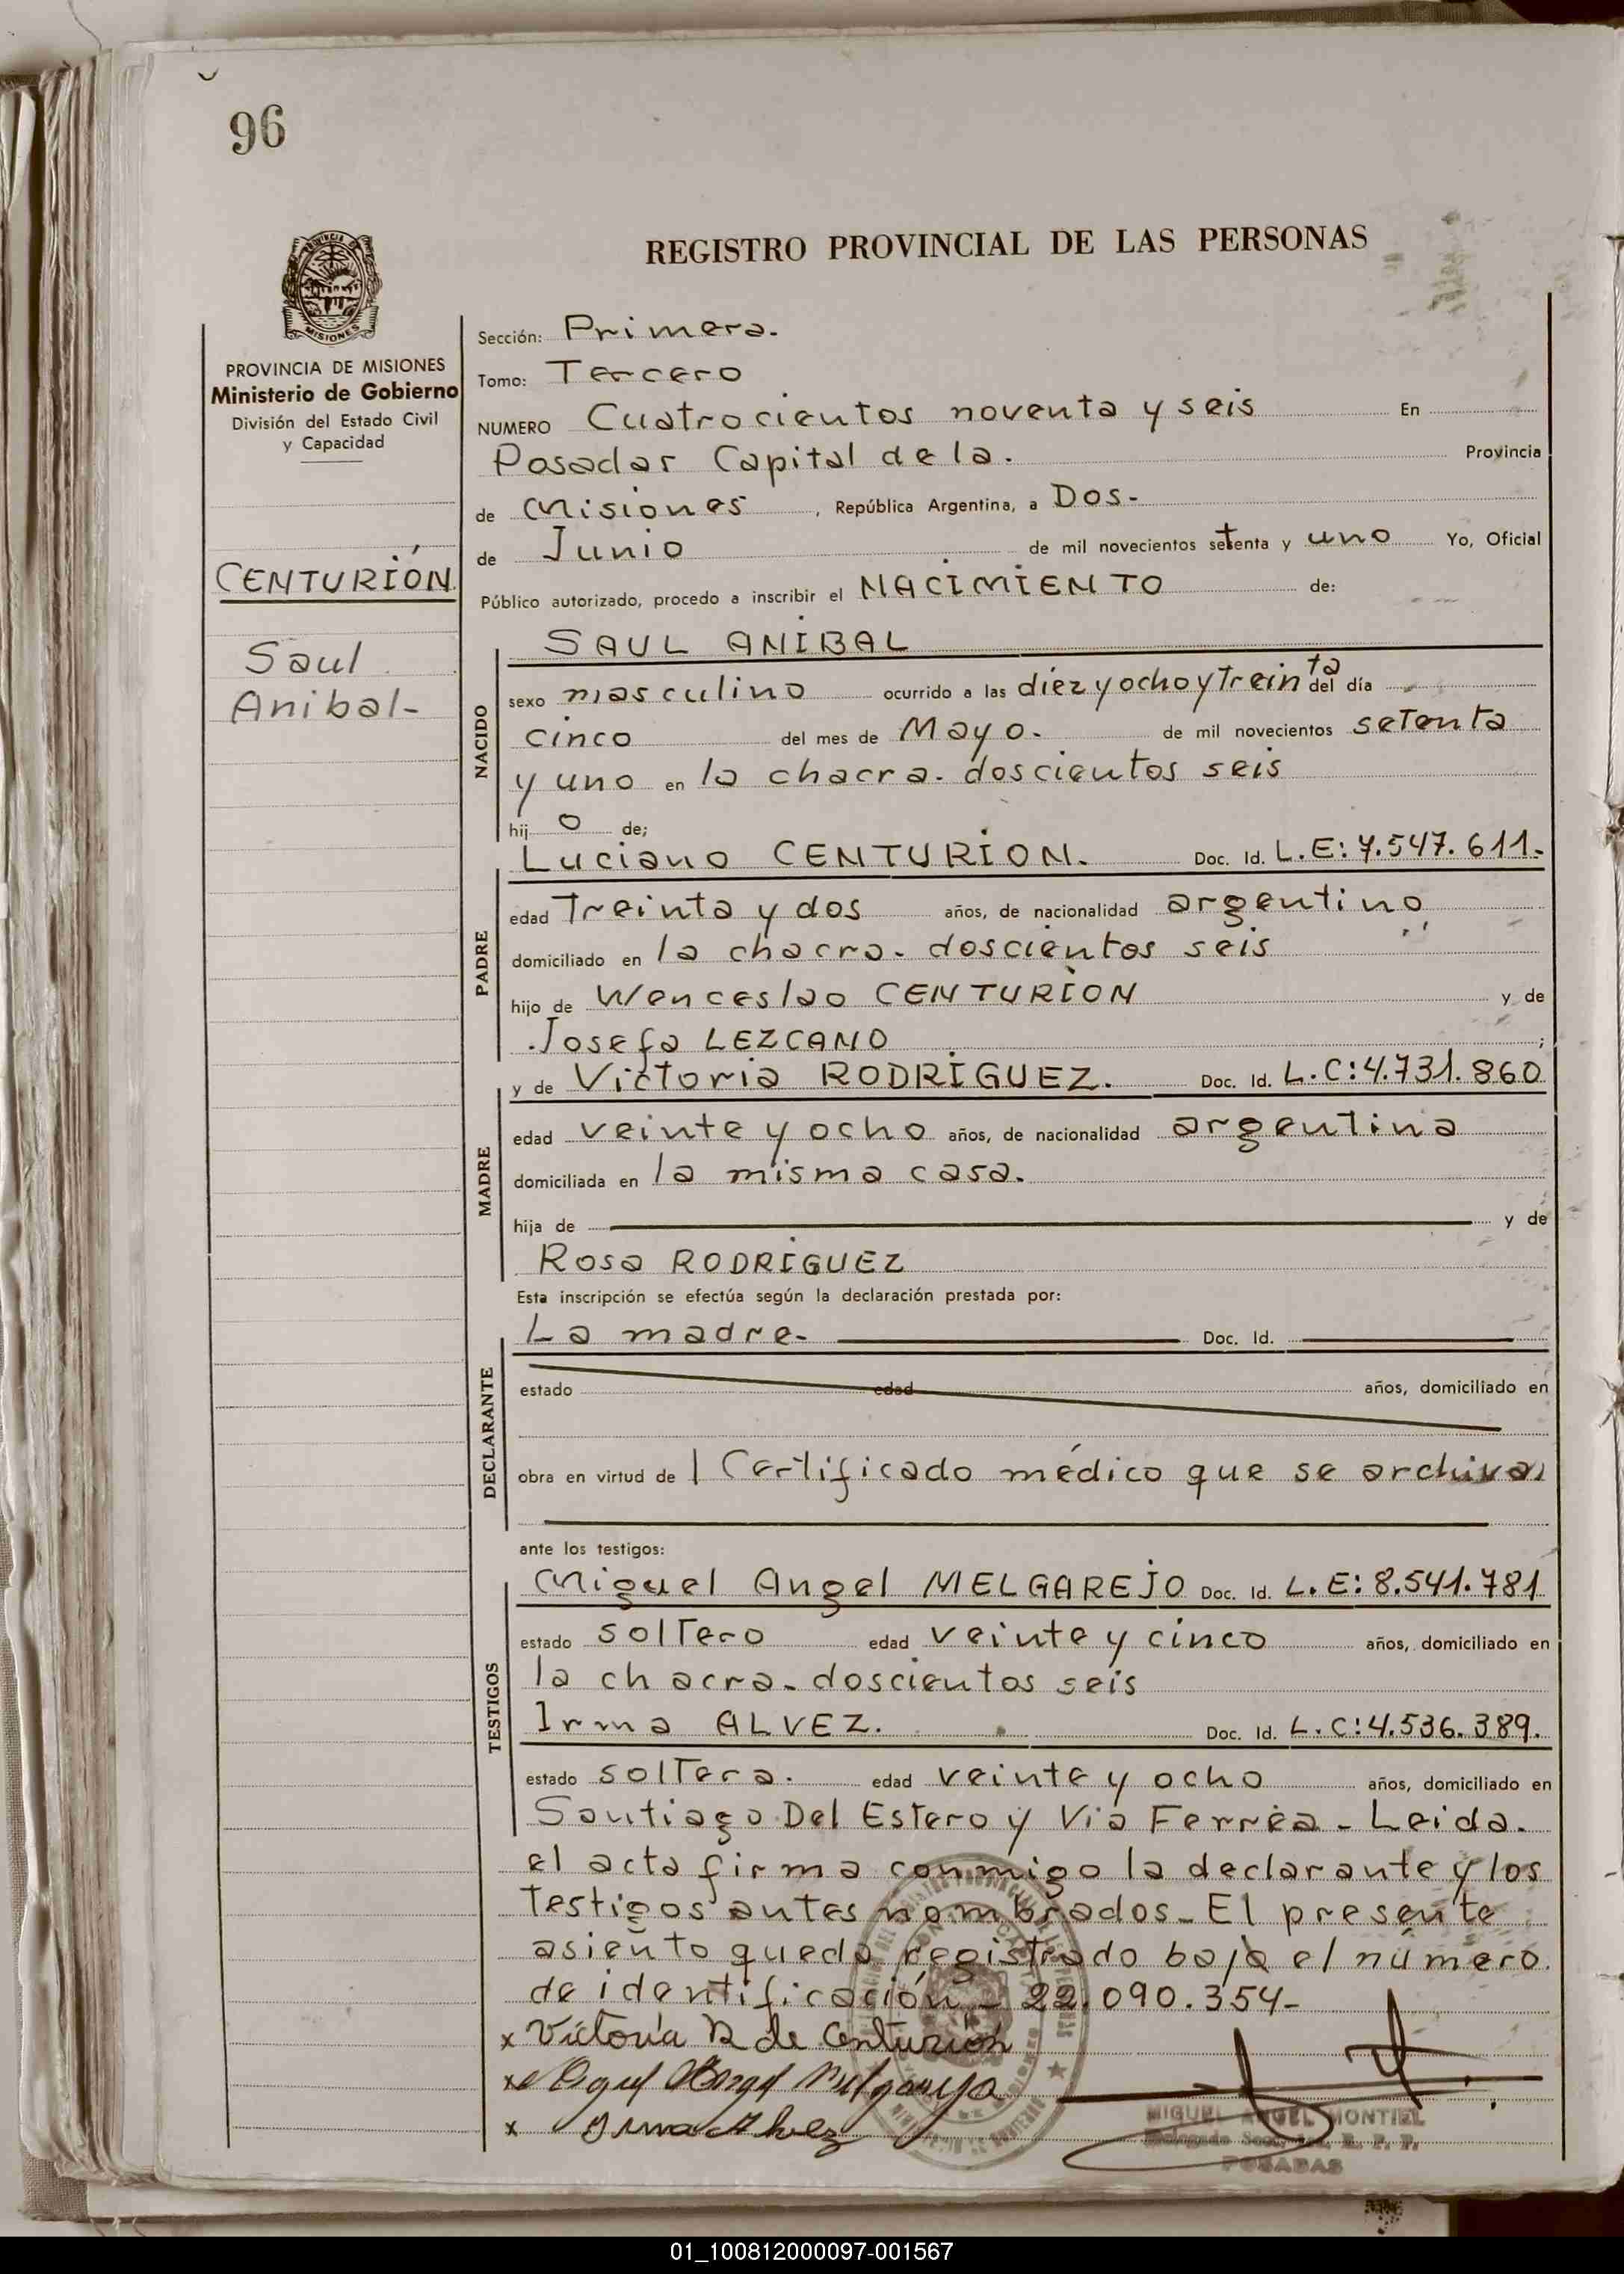 96
REGISTRO PROVINCIAL DE LAS PERSONAS
MISIONES
PROVINCIA DE MISIONES
Ministerio de Gobierno
División del Estado Civil
y Capacidad
CENTURIÓN.
Saul
Anibal-
Sección: Primera.
Tomo: Tercero
NUMERO Cuatrocientos noventa y seis En
Posadas Capital de la. Provincia
de Misiones, República Argentina, a Dos-
de Junio de mil novecientos setenta y uno Yo, Oficial
Público autorizado, procedo a inscribir el NACIMIENTO de:
NACIDO
SAUL ANIBAL
sexo masculino ocurrido a las diez y ocho y treinta del día
cinco del mes de Mayo. de mil novecientos setenta
y uno en la chacra. doscientos seis
hij o de;
PADRE
Luciano CENTURION. Doc. Id. L.E: 7.547.611.
edad Treinta y dos años, de nacionalidad argentino
domiciliado en la chacra. doscientos seis
hijo de Wenceslao CENTURION y de
Josefa LEZCANO;
MADRE
y de Victoria RODRIGUEZ. Doc. Id. L.C:4.731.860
edad veinte y ocho años, de nacionalidad argentina
domiciliada en la misma casa.
hija de y de
Rosa RODRIGUEZ
Esta inscripción se efectúa según la declaración prestada por:
DECLARANTE
La madre- Doc. Id.
estado edad años, domiciliado en
obra en virtud de 1 Certificado médico que se archiva,
ante los testigos:
TESTIGOS
Miguel Angel MELGAREJO Doc. Id. L.E: 8.541.781
estado soltero edad veinte y cinco años, domiciliado en
la chacra. doscientos seis
Irma ALVEZ. Doc. Id. L.C:4.536.389.
estado soltera. edad veinte y ocho años, domiciliado en
Santiago Del Estero y Via Ferréa - Leida.
el acta firma conmigo la declarante y los
testigos antes nombrados - El presente
asiento queda registrado bajo el número
de identificación - 22.090.354-
x Victoria R de Centurión
x Irma Alvez
MIGUEL ANGEL MONTIEL
POSADAS
01_100812000097-001567